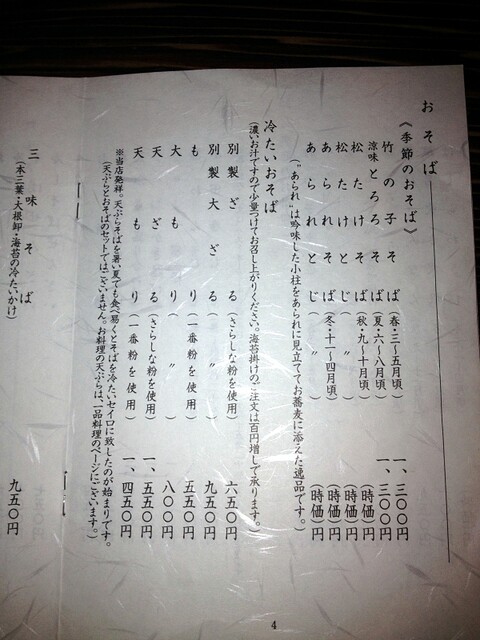 おそば
《季節のおそば》
竹の子そば(春・三~五月頃) 一、三〇〇円
涼味とろろそば(夏・六~八月頃) 一、三〇〇円
松たけそば(秋・九~十月頃) (時価)円
松たけとじ( 〃 ) (時価)円
あられそば(冬・十一~四月頃) (時価)円
あられとじ( 〃 ) (時価)円
("あられ"は吟味した小柱をあられに見立ててお蕎麦に添えた逸品です。)
冷たいおそば
(濃いお汁ですので少量つけてお召し上がりください。海苔掛けのご注文は百円増しで承ります。)
別製ざる(さらしな粉を使用) 六五〇円
別製大ざる( 〃 ) 九五〇円
もり(一番粉を使用) 五五〇円
大もり( 〃 ) 八〇〇円
天ざる(さらしな粉を使用) 一、五五〇円
天もり(一番粉を使用) 一、四五〇円
※当店発祥。天ぷらそばを暑い夏でも食べ易くとそばを冷たいセイロに致したのが始まりです。
(天ぷらとおそばのセットではございません。お料理の天ぷらは、一品料理のページにございます。)
三味そば 九五〇円
(本三葉・大根卸・海苔の冷たいかけ)
4